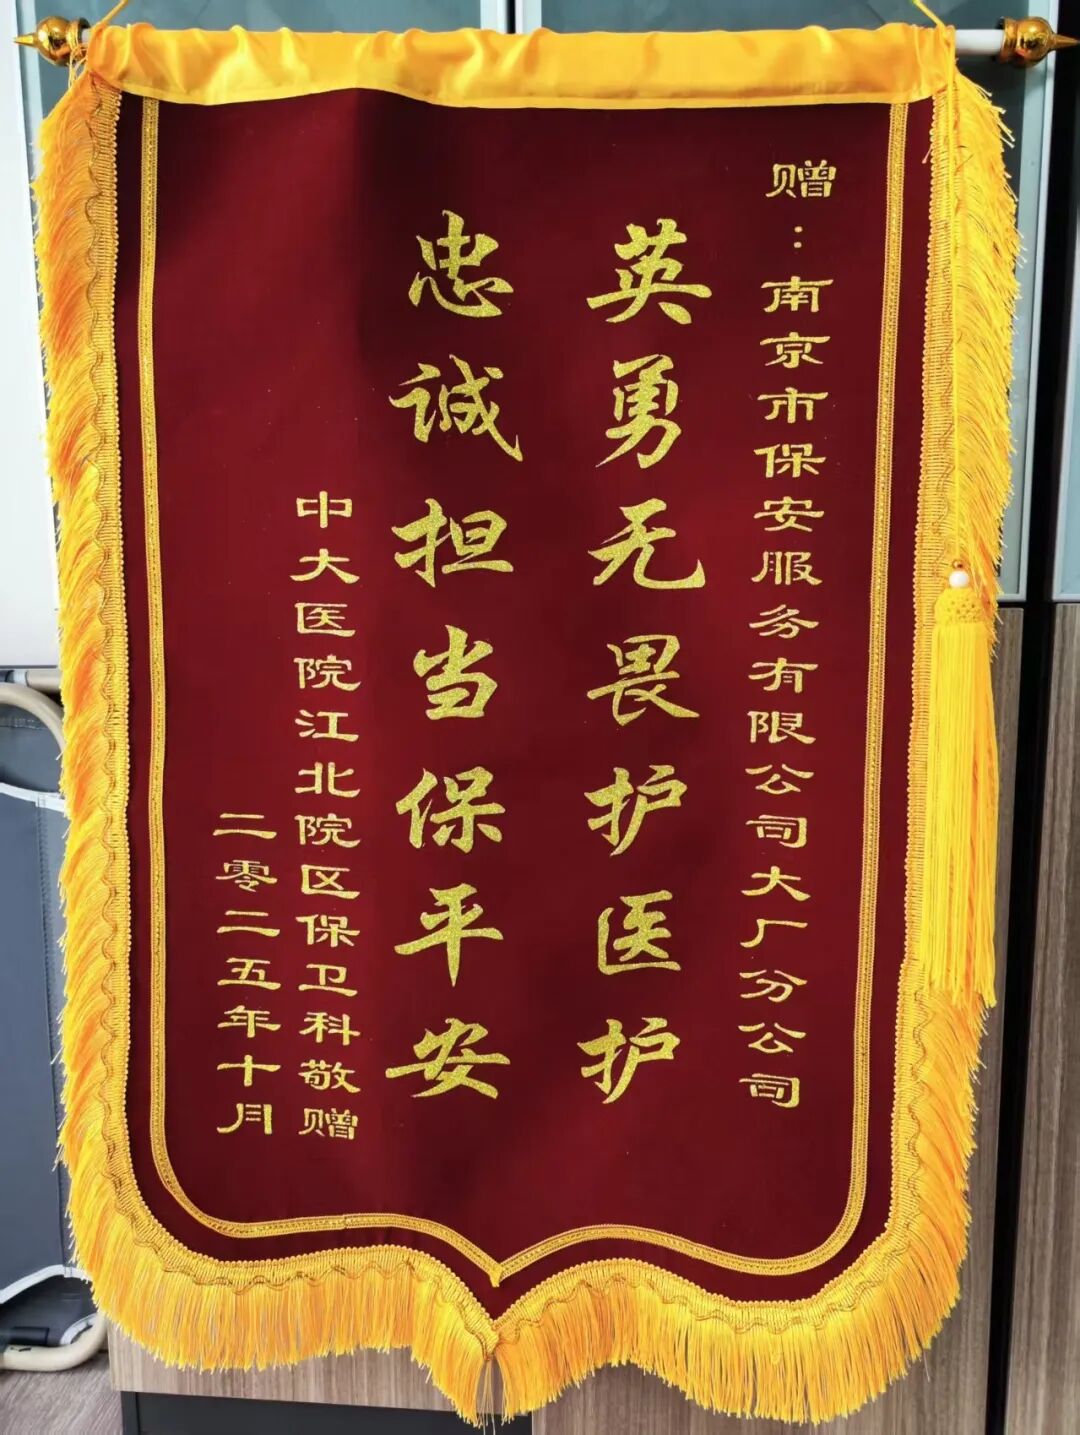 赠：南京市保安服务有限公司大厂分公司
英勇无畏护医护
忠诚担当保平安
中大医院江北院区保卫科敬赠
二零二五年十月